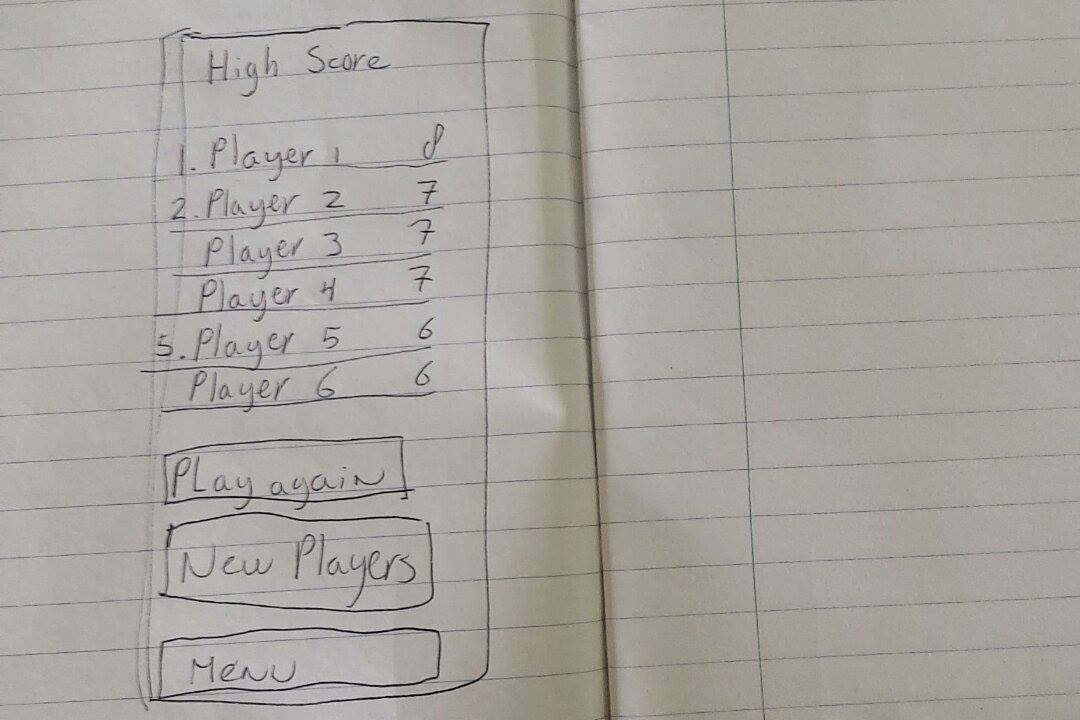 High Score
1. Player 1 8
2. Player 2 7
Player 3 7
Player 4 7
5. Player 5 6
Player 6 6
PLay again
New Players
MeNU